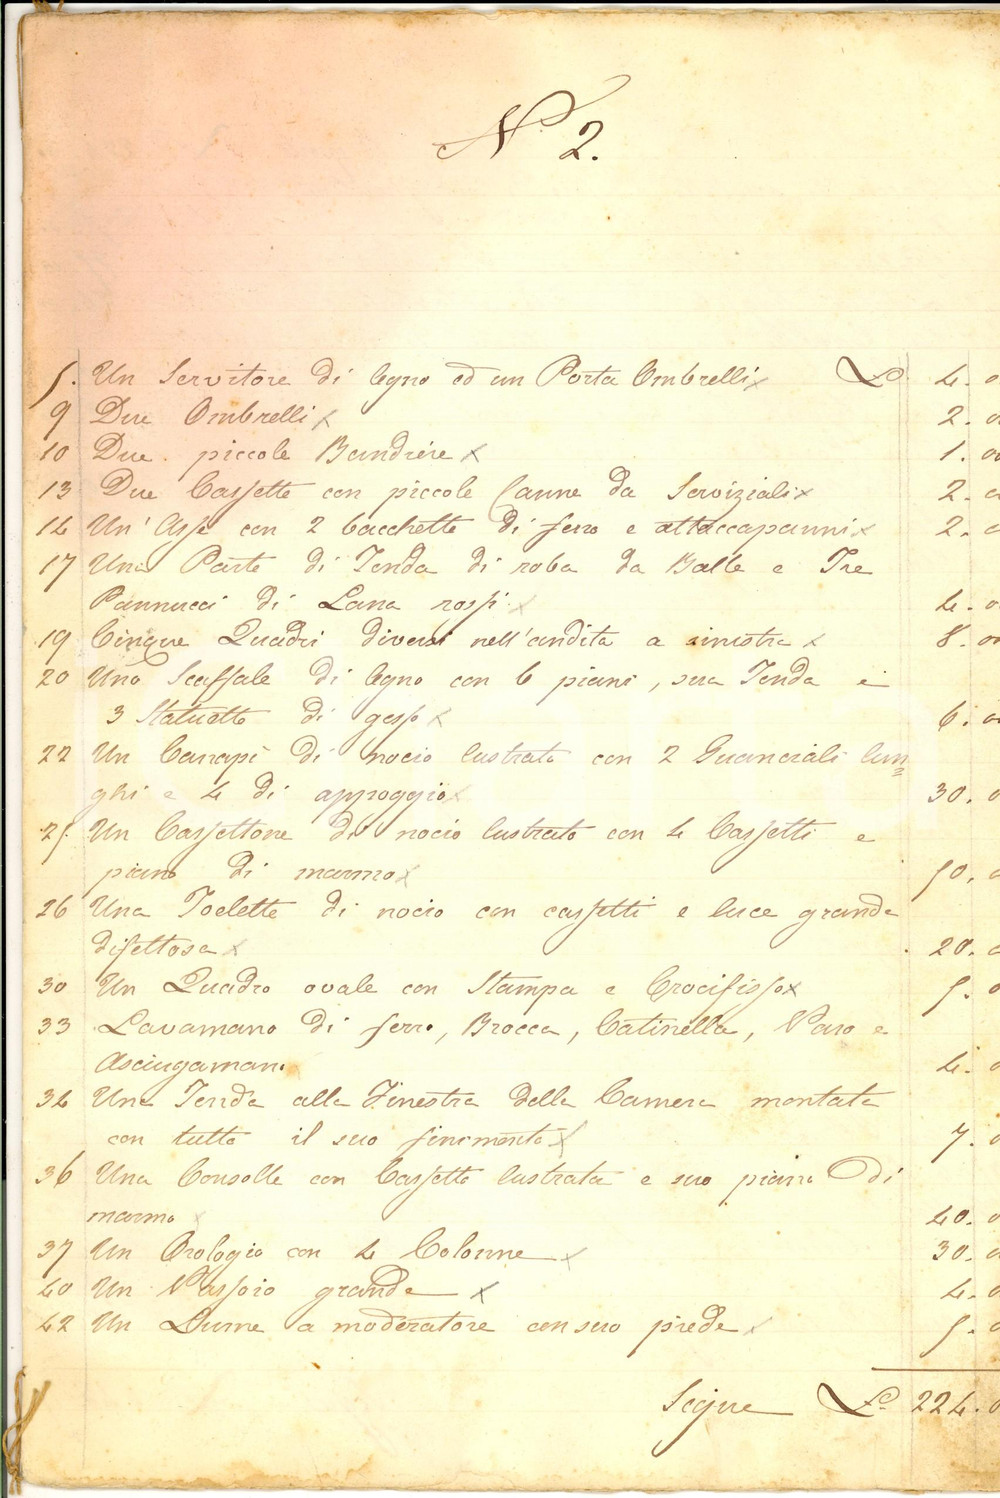 N. 2.
5. Un Servitore di legno ed un Porta Ombrelli x L. 4. 0
9 Due Ombrelli x 2. 0
10 Due piccole Bandiere x 1. 00
13 Due Cassette con piccole Canne da Serviziali x 2. 0
14 Un' Asse con 2 bacchette di ferro e attaccapanni x 2. 0
17 Una Parte di Tenda di roba da Balle e Tre
Pannucci di Lana rossi x 4. 0
19 Cinque Quadri diversi nell'andita a sinistra x 8. 00
20 Uno Scaffale di legno con 6 piani, sua Tenda e
3 Statuette di gesso x 6. 0
22 Un Canapi di nocio lustrato con 2 Guanciali lun=
ghi e 4 di appoggio x 30. 0
25. Un Cassettone di nocio lustrato con 4 Cassetti e
piano di marmo x 50. 0
26 Una Toelette di nocio con cassetti e luce grande
difettosa x 20. 0
30 Un Quadro ovale con Stampa e Crocifisso x 5. 0
33 Lavamano di ferro, Brocca, Catinella, Vaso e
Asciugamani 4. 0
34 Una Tenda alla Finestra della Camera montata
con tutto il suo finimento x 7. 0
36 Una Consolle con Cassetto lustrata e suo piano di
marmo x 40. 0
37 Un Orologio con 4 Colonne x 30. 0
40 Un Vassoio grande x 4. 0
42 Un Lume a moderatore con suo piede x 5. 0
Segue L. 224. 0